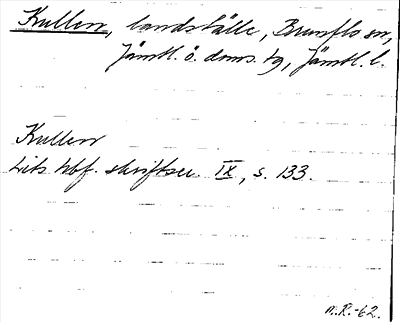 Kullen, landställe, Brunflo sn,
Jämtl. ö. doms. tg, Jämtl. l.
Kullen
Lits hbf. skriftser. IX, s. 133.
N.R.-62.